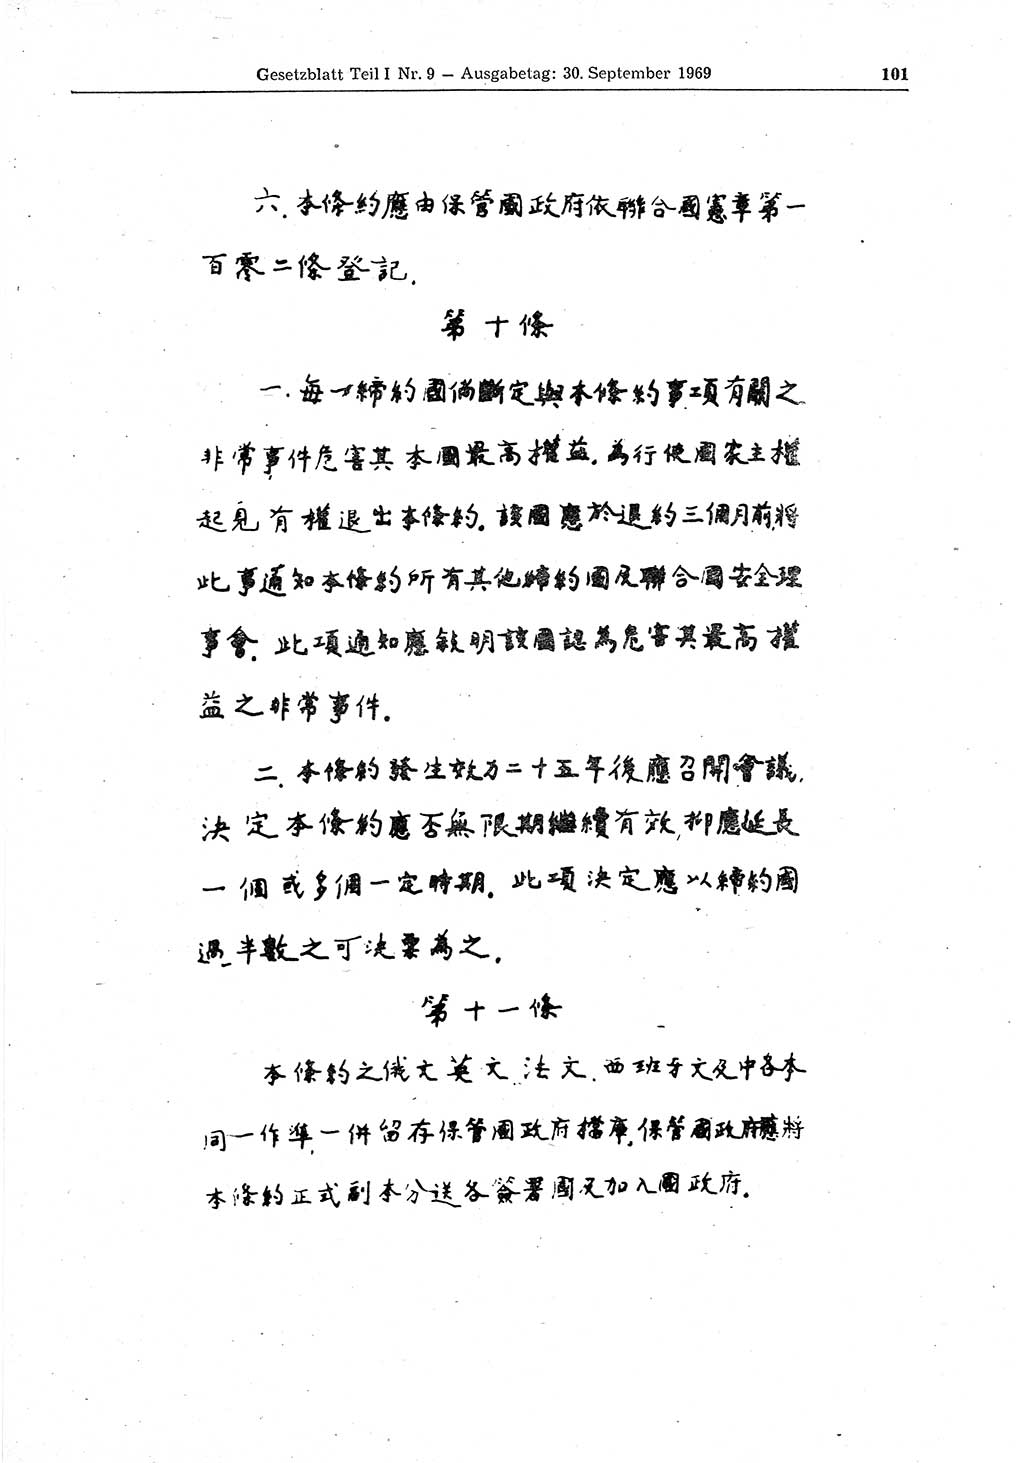 Gesetzblatt Teil I Nr. 9 — Ausgabetag: 30. September 1969 101
六. 本條約應由保管國政府依聯合國憲章第一
百零二條登記.
第十條
一. 每一締約國倘斷定與本條約事項有關之
非常事件危害其本國最高權益. 為行使國家主權
起見有權退出本條約. 該國應於退約三個月前將
此事通知本條約所有其他締約國及聯合國安全理
事會. 此項通知應敍明該國認為危害其最高權
益之非常事件.
二. 本條約發生效力二十五年後應召開會議,
決定本條約應否無限期繼續有效, 抑應延長
一個或多個一定時期. 此項決定應以締約國
過半數之可決票為之.
第十一條
本條約之俄文英文. 法文. 西班牙文及中各本
同一作準, 一併留存保管國政府檔庫, 保管國政府應將
本條約正式副本分送各簽署國及加入國政府.